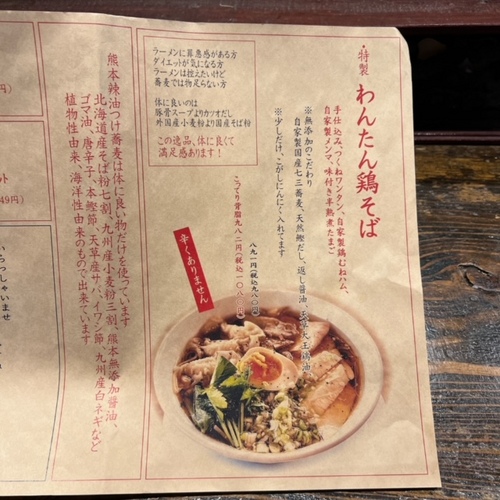 ・特製
わんたん鶏そば
手仕込み、つくねワンタン、自家製鶏むねハム、
自家製メンマ、味付き半熟煮たまご
※無添加のこだわり
自家製国産七三蕎麦、天然鰹だし、返し醤油、
※少しだけ、こがしにんにく入れてます
八九一円(税込九八〇円)
こってり背脂九八二円(税込一〇八〇円)
辛くありません
ラーメンに罪悪感がある方
ダイエットが気になる方
ラーメンは控えたいけど
蕎麦では物足らない方
体に良いのは
豚骨スープよりカツオだし
外国産小麦粉より国産そば粉
この逸品、体に良くて
満足感あります!
熊本辣油つけ蕎麦は体に良い物だけを使っています
北海道産そば粉七割、九州産小麦粉三割、熊本無添加醤油、
ゴマ油、唐辛子、本鰹節、天草産サバイワシ節、九州産白ネギなど
植物性由来、海洋性由来のもので出来ています
円)
ット
49円)
いらっしゃいませ